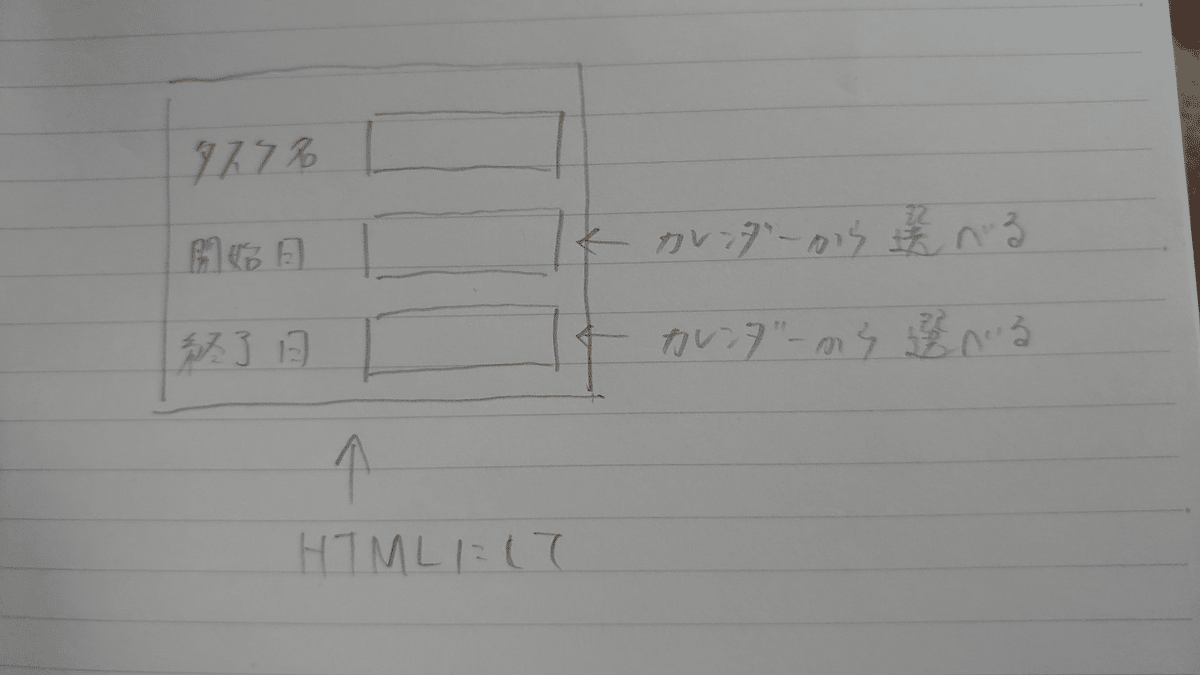 タスク名
開始日 ← カレンダーから選べる
終了日 ← カレンダーから選べる
↑
HTMLにして